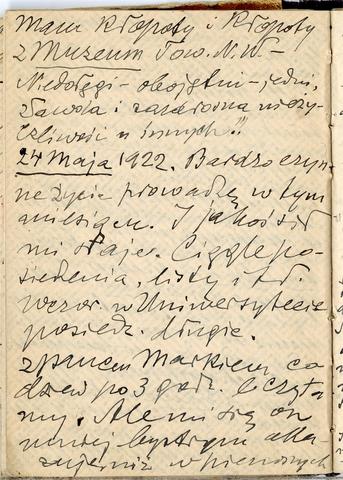 mam kłopoty i kłopoty
z Muzeum Tow. N. W. –
Niedołęgi – obojętni – jedni,
zawoła i zazdrosna nieży-
czliwość u innych!!!
24 Maja 1922. Bardzo czyn-
ne życie prowadzę w tym
miesiącu. I jakoś sił
mi staje. Ciągle po-
siedzenia, listy i t.d.
wczor. w Uniwersytecie
posiedz. długie.
z panem Markiem co
dzień po 3 godz. czyta-
my. Ale mi się on
mniej bystrym
w pierwszych